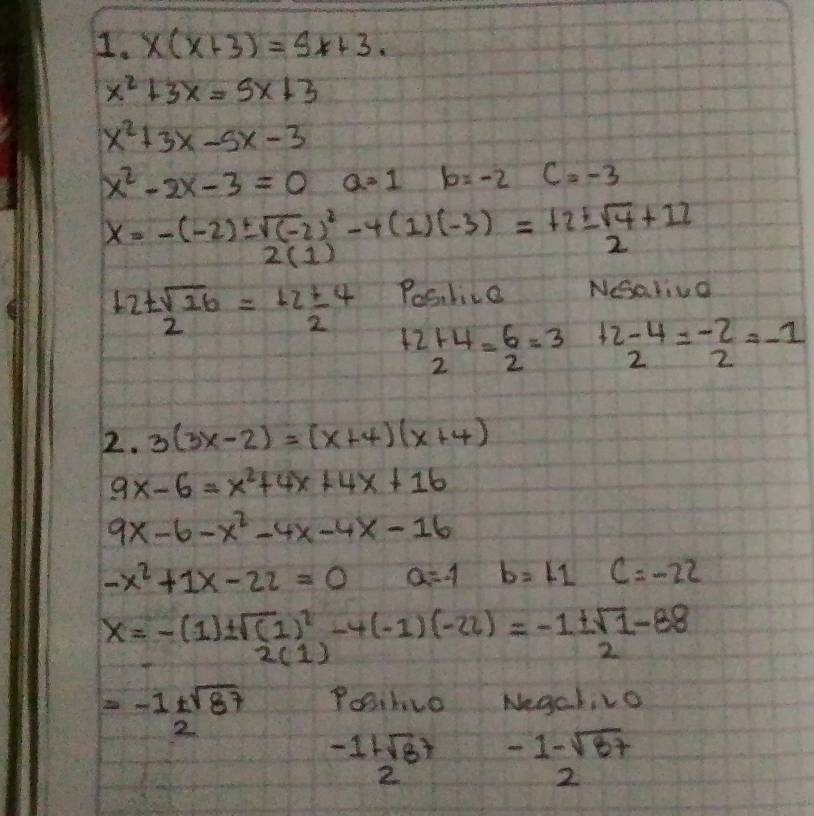 1. x(x+3) = 5x+3.
x²+3x = 5x+3
x²+3x-5x-3
x²-2x-3 = 0 a=1 b=-2 c=-3
x = -(-2)±√(-2)²-4(1)(-3) = +2±√4+12
2(1) 2
+2±√16 = +2±4 Positivo Negativo
2 2
+2+4=6=3 +2-4=-2=-1
2 2 2 2
2. 3(3x-2) = (x+4)(x+4)
9x-6 = x²+4x+4x+16
9x-6-x²-4x-4x-16
-x²+1x-22 = 0 a=-1 b=+1 C=-22
x = -(1)±√(1)²-4(-1)(-22) = -1±√1-88
2(1) 2
= -1±√87 Positivo Negativo
2
-1+√87 -1-√87
2 2